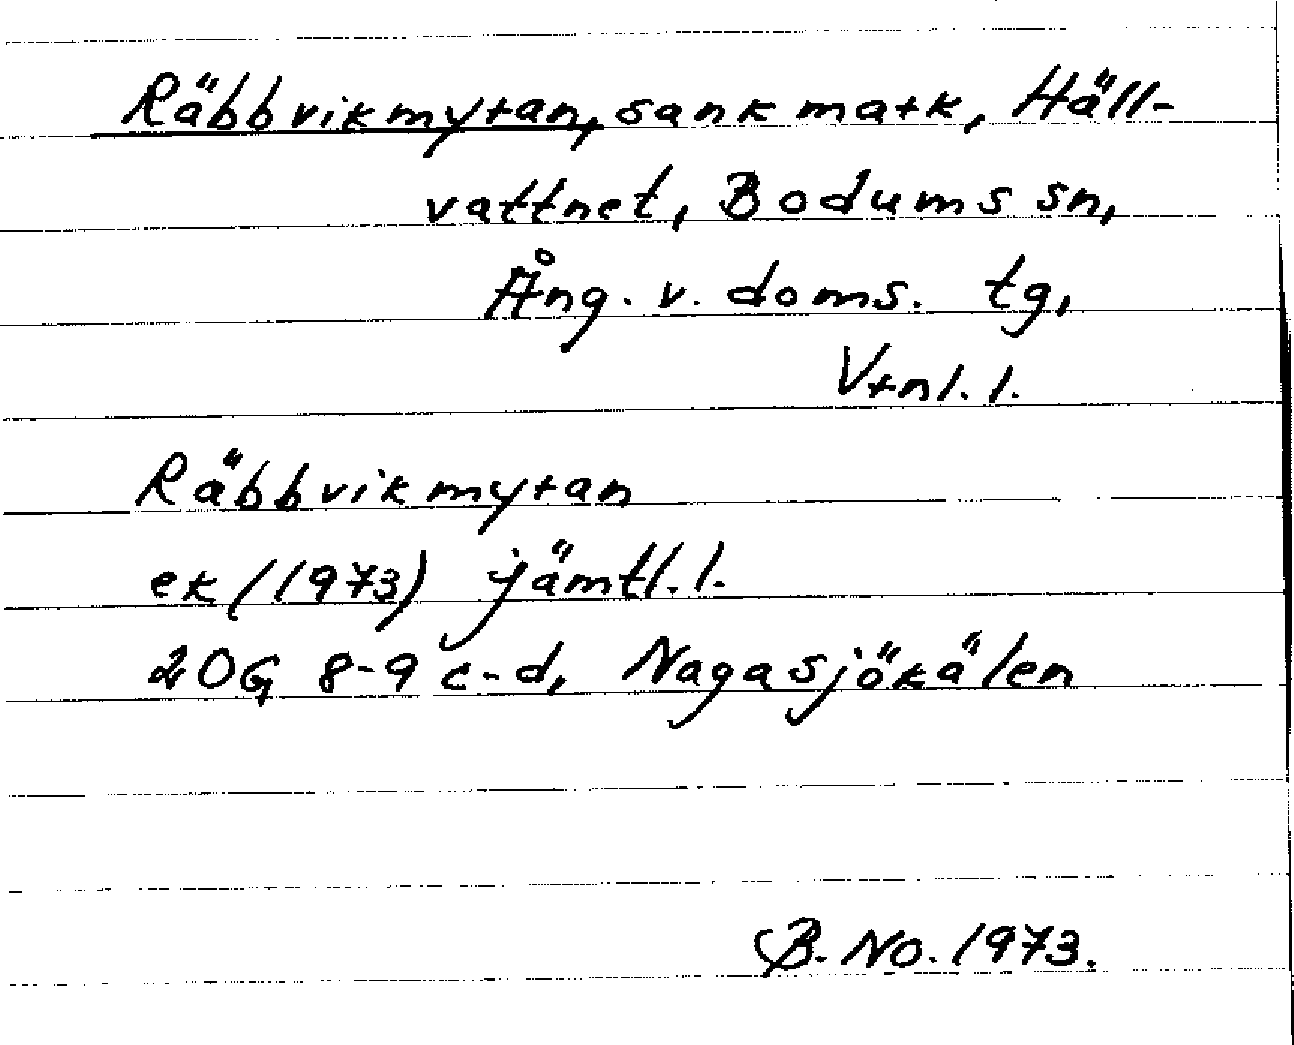 Räbbvikmyran, sank mark, Häll-
vattnet, Bodums sn,
Ång. v. doms. tg,
Vrnl. l.
Räbbvikmyran
ek (1973) jämtl. l.
20G 8-9 c-d, Nagasjökälen
B. No. 1973.